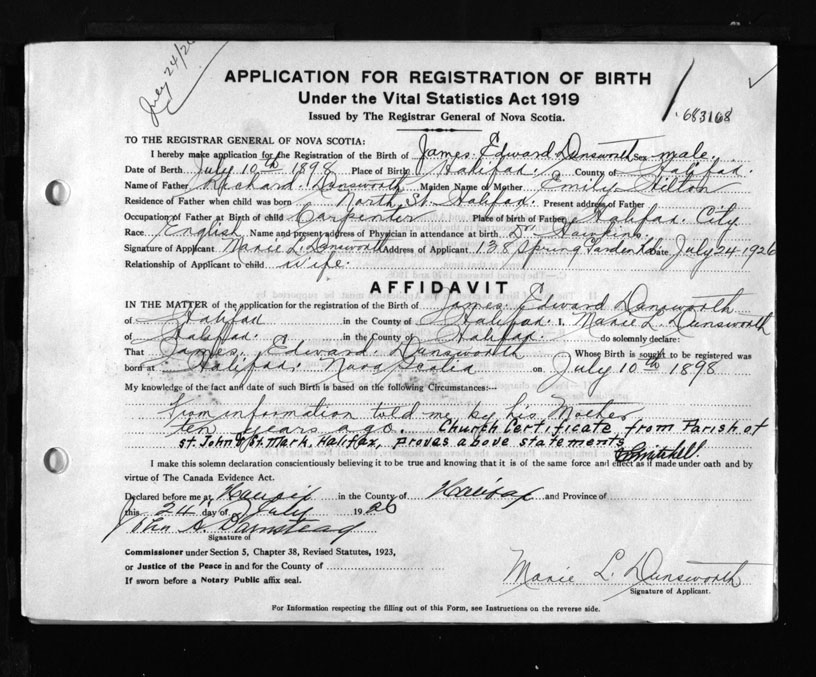 July 24/26
APPLICATION FOR REGISTRATION OF BIRTH
Under the Vital Statistics Act 1919
Issued by The Registrar General of Nova Scotia.
683168
TO THE REGISTRAR GENERAL OF NOVA SCOTIA:
I hereby make application for the Registration of the Birth of James Edward Dunsworth Sex male.
Date of Berth July 10th 1898 Place of Birth Halifax. County of Halifax.
Name of Father Richard. Dunsworth Maiden Name of Mother Emily Hilton
Residence of Father when child was born North St. Halifax. Present address of Father
Occupation of Father at Birth of child Carpenter Place of birth of Father Halifax. City
Race English Name and present address of Physician in attendance at birth Dr Hawkins.
Signature of Applicant Marie L. Dunsworth Address of Applicant 138 Spring Garden Rd Date July 24 1926
Relationship of Applicant to child wife.
AFFIDAVIT
IN THE MATTER of the application for the registration of the Birth of James. Edward Dunsworth
of Halifax in the County of Halifax. I, Marie L. Dunsworth
of Halifax. in the County of Halifax. do solemnly declare:
That James. Edward. Dunsworth Whose Birth is sought to be registered was
born at Halifax. Nova Scotia on July 10th 1898
My knowledge of the fact and date of such Birth is based on the following Circumstances:—
From information told me by his Mother
ten years ago. Church Certificate from Parish of
St. John & St. Mark, Halifax, proves above statements
I make this solemn declaration conscientiously believing it to be true and knowing that it is of the same force and effect as if made under oath and by
virtue of The Canada Evidence Act.
Declared before me at Halifax in the County of Halifax and Province of
this 24" day of July 1926
John A.
Signature of
Commissioner under Section 5, Chapter 38, Revised Statutes, 1923,
or Justice of the Peace in and for the County of
If sworn before a Notary Public affix seal.
Marie L. Dunsworth
Signature of Applicant.
For Information respecting the filling out of this Form, see Instructions on the reverse side.